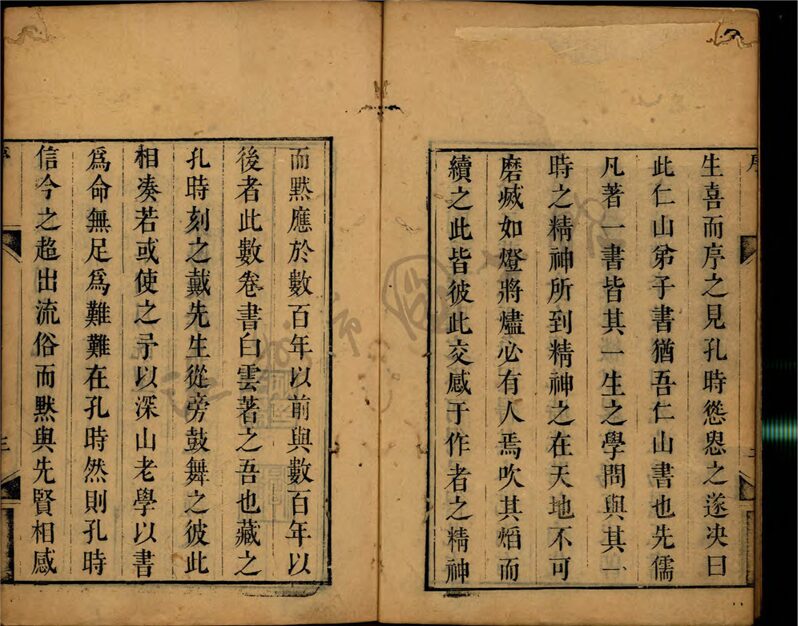 生喜而序之見孔時慫恿之遂决曰
此仁山弟子書猶吾仁山書也先儒
凡著一書皆其一生之學問與其一
時之精神所到精神之在天地不可
磨滅如燈將燼必有人焉吹其焰而
續之此皆彼此交感于作者之精神
而黙應於數百年以前與數百年以
後者此數卷書白雲著之吾也藏之
孔時刻之戴先生從旁鼓舞之彼此
相凑若或使之予以深山老學以書
爲命無足爲難難在孔時然則孔時
信今之超出流俗而黙與先賢相感